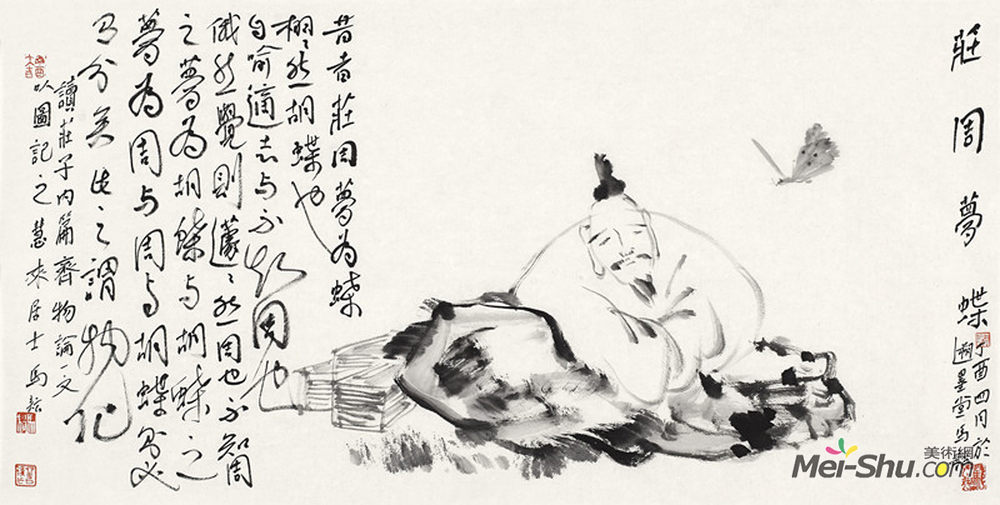 莊周夢蝶
丁酉四月於
墨堂馬
昔者莊周夢為蝶
栩々然胡蝶也
自喻適志与不知周也
俄然覺則蘧々然周也不知周
之夢為胡蝶与胡蝶之
夢為周与周与胡蝶必
有分矣此之謂物化
讀莊子内篇齊物論一文
以圖記之慧來居士馬耘
美術網
Mei-Shu.com